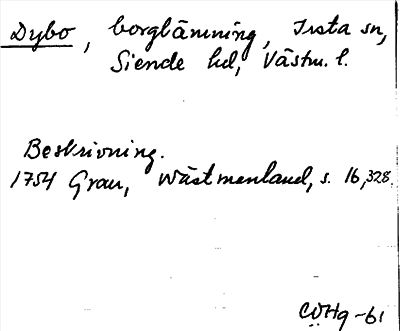 Dybo, borglämning, Irsta sn,
Siende hd, Västm. l.
Beskrivning.
1754 Grau, Wästmanland, s. 16, 328.
CWHg -61